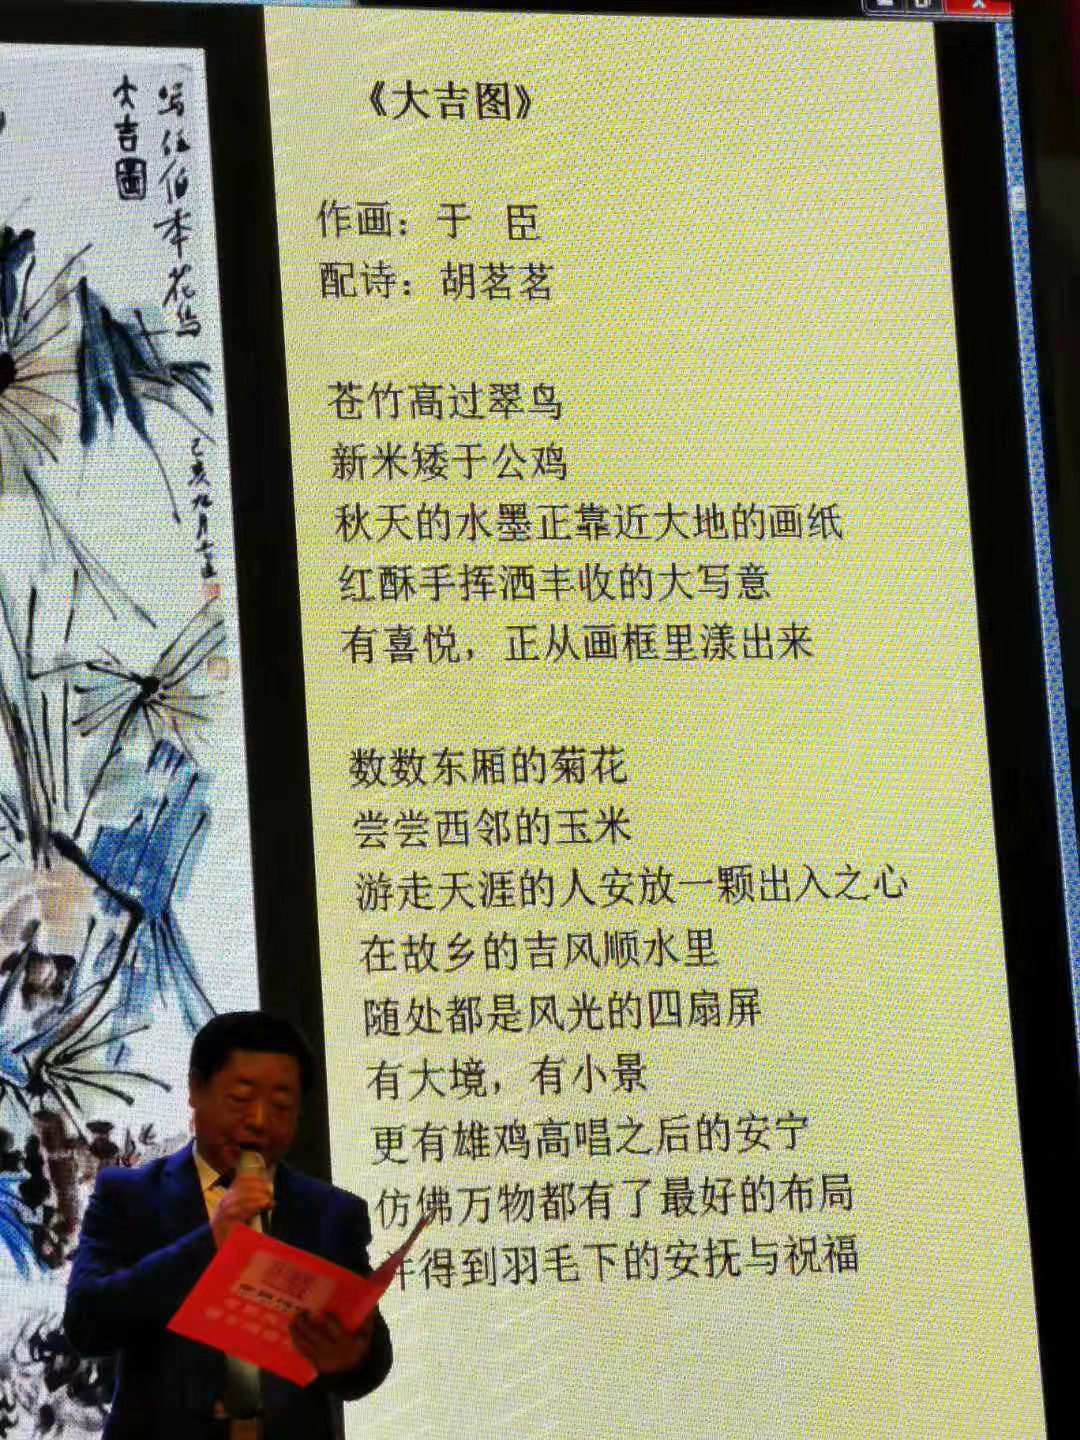 《大吉图》
作画：于 臣
配诗：胡茗茗
苍竹高过翠鸟
新米矮于公鸡
秋天的水墨正靠近大地的画纸
红酥手挥洒丰收的大写意
有喜悦，正从画框里漾出来
数数东厢的菊花
尝尝西邻的玉米
游走天涯的人安放一颗出入之心
在故乡的吉风顺水里
随处都是风光的四扇屏
有大境，有小景
更有雄鸡高唱之后的安宁
仿佛万物都有了最好的布局
并得到羽毛下的安抚与祝福
大吉圖
写任伯年花鸟
己亥九月